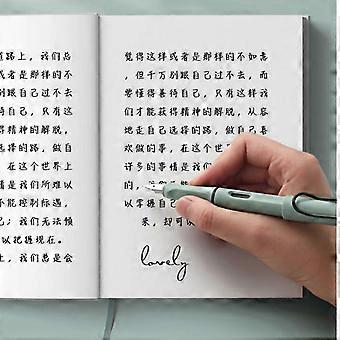 道路上，我们总
或者是那样的不
跟自己过不去
待自己，只有这
得精神的解脱，
选择的路，做自
在这个世界上
是我们所难以
不能控制际遇，
己；我们无法预
以把握现在。
上，我们总是会
觉得这样或者是那样的不如意
，但千万别跟自己过不去，而
要懂得善待自己，只有这样我
们才能获得精神的解脱，从容
地走自己选择的路，做自己喜
欢做的事，在这个世界上
许多的事情是我们
的，
以掌握自己
来，却可以
lovely